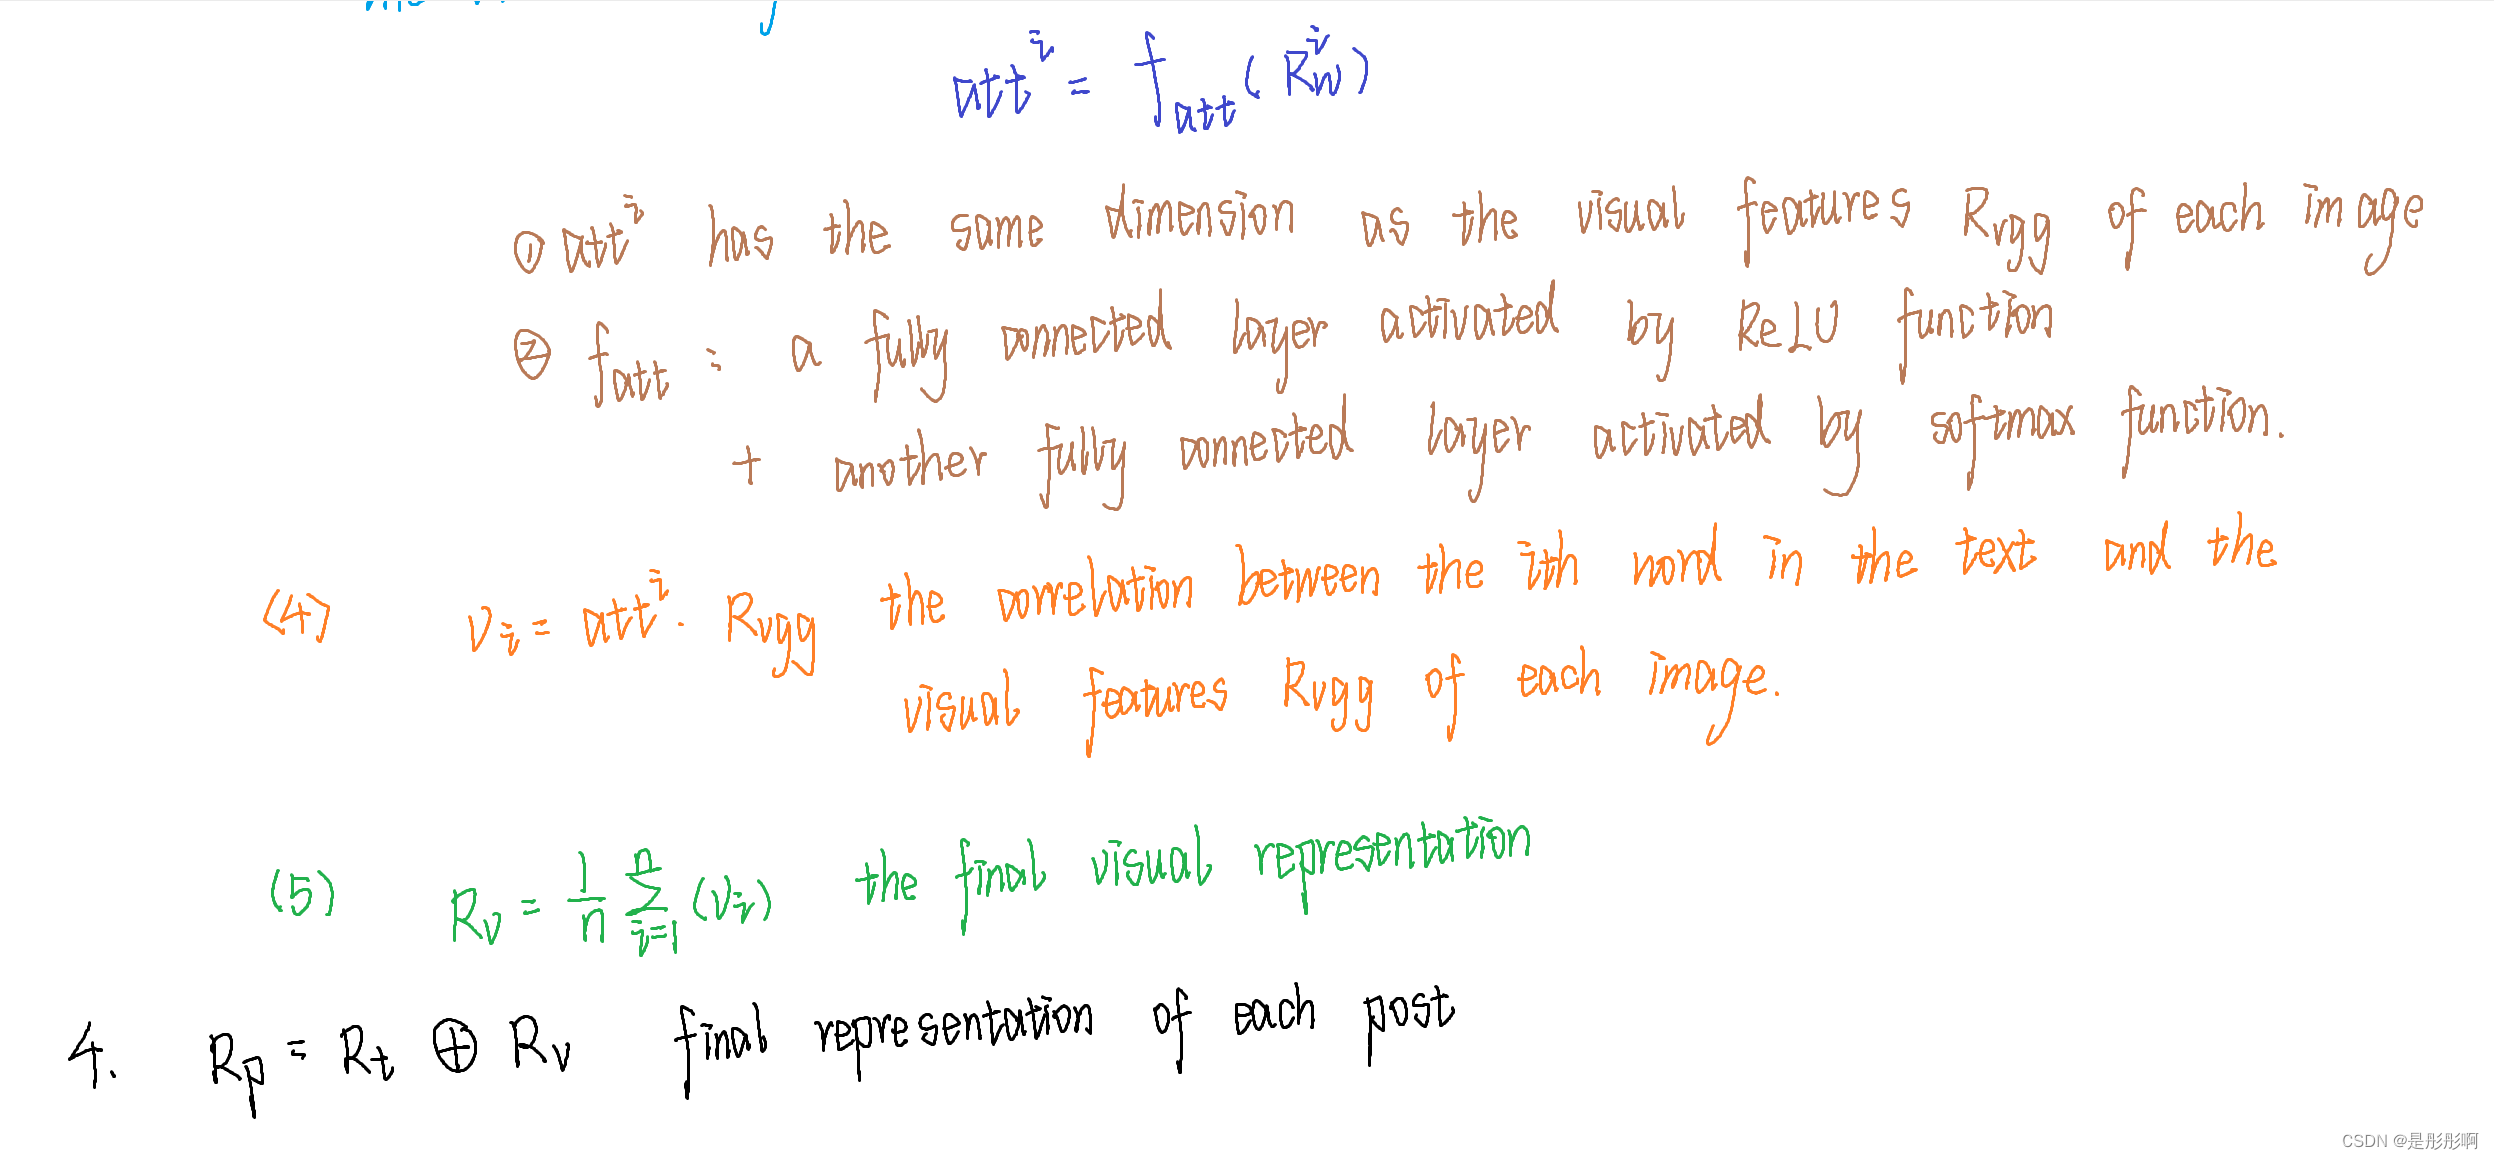 attⁱ = f_att(R_wⁱ)
① attⁱ has the same dimension as the visual features R_vgg of each image
② f_att : a fully connected layer activated by ReLU function
+ another fully connected layer activated by softmax function.
(4) v_i = attⁱ · R_vgg the correlation between the ith word in the text and the
visual features R_vgg of each image.
(5) R_v = 1/n ∑_{i=1}^{n} (v_i) the final visual representation
4. R_p = R_t ⊕ R_v final representation of each post
CSDN @是彤彤啊